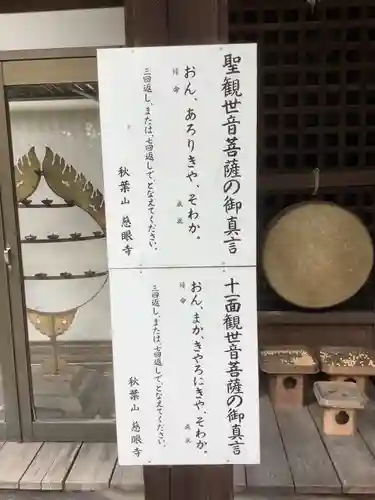 聖観世音菩薩の御真言
おん、あろりきや、そわか。
帰命
成就
三回返し、または、七回返しで、となえてください。
秋葉山 慈眼寺
十一面観世音菩薩の御真言
おん、まか、きやろにきや、そわか。
帰命
成就
三回返し、または、七回返しで、となえてください。
秋葉山 慈眼寺